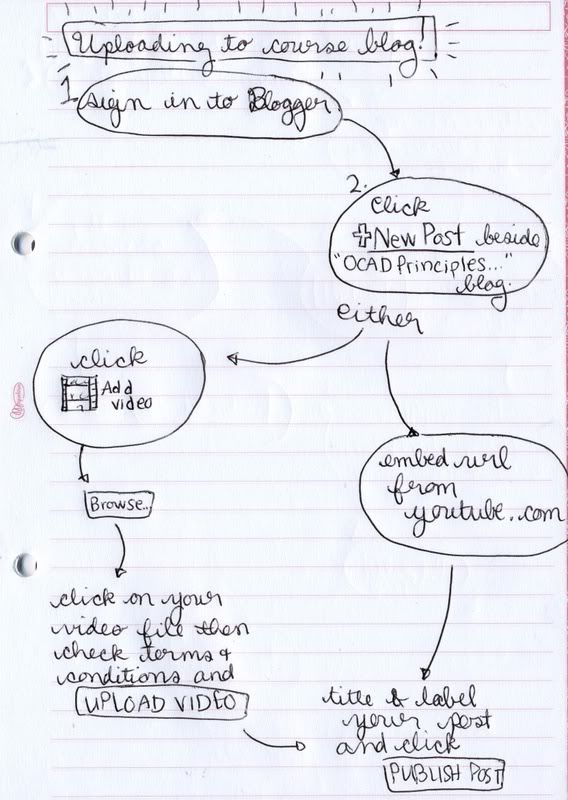 Uploading to course blog!
1. sign in to Blogger
2. click
+New Post beside
"OCAD Principles..."
blog.
either
click
Add
video
Browse..
click on your
video file then
check terms &
conditions and
UPLOAD VIDEO
embed url
from
youtube..com
title & label
your post
and click
PUBLISH POST